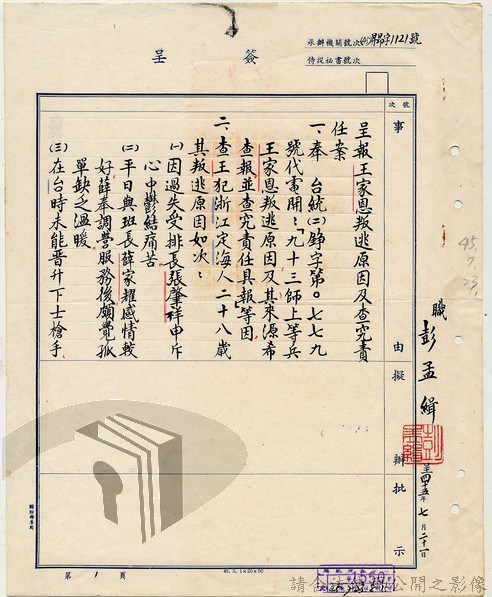 簽呈
承辦機關號次(45)昇昂字1121號
侍從祕書號次
號次
事由
擬辦
批示
呈報王家恩叛逃原因及查究責
任案
一、奉 台統(二)錚字第○七七九
號代電開:「九十三師上等兵
王家恩叛逃原因及其來源希
查報並查究責任具報」等因
二、查王犯浙江定海人二十八歲
其叛逃原因如次:
(一)因過失受排長張肇祥申斥
心中鬱結痛苦
(二)平日與班長薛家耀感情較
好薛奉調營服務後頗覺孤
單缺乏溫暖
(三)在台時未能晉升下士槍手
職 彭孟緝
呈四十五年七月二十一日
45.
7.
23.
第1頁
45. 5. 1×20×50